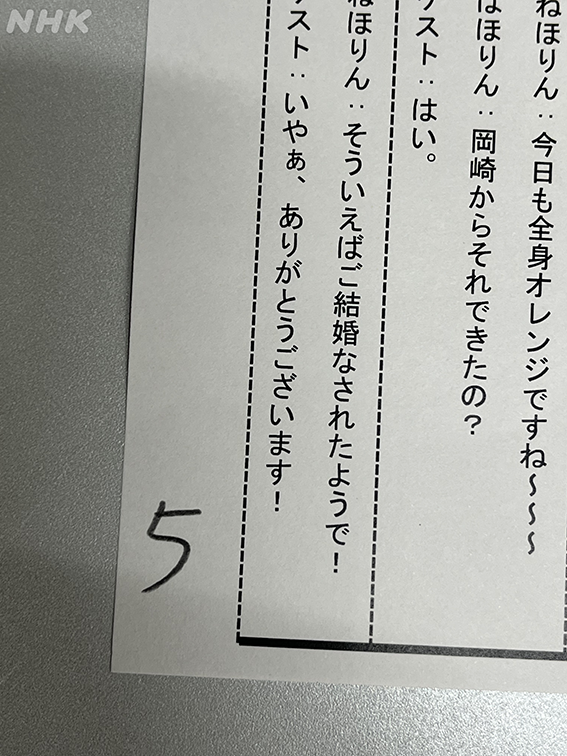 NHK
ねほりん：今日も全身オレンジですね～～～
ほりん：岡崎からそれできたの？
スト：はい。
ねほりん：そういえばご結婚なされたようで！
スト：いやぁ、ありがとうございます！
5